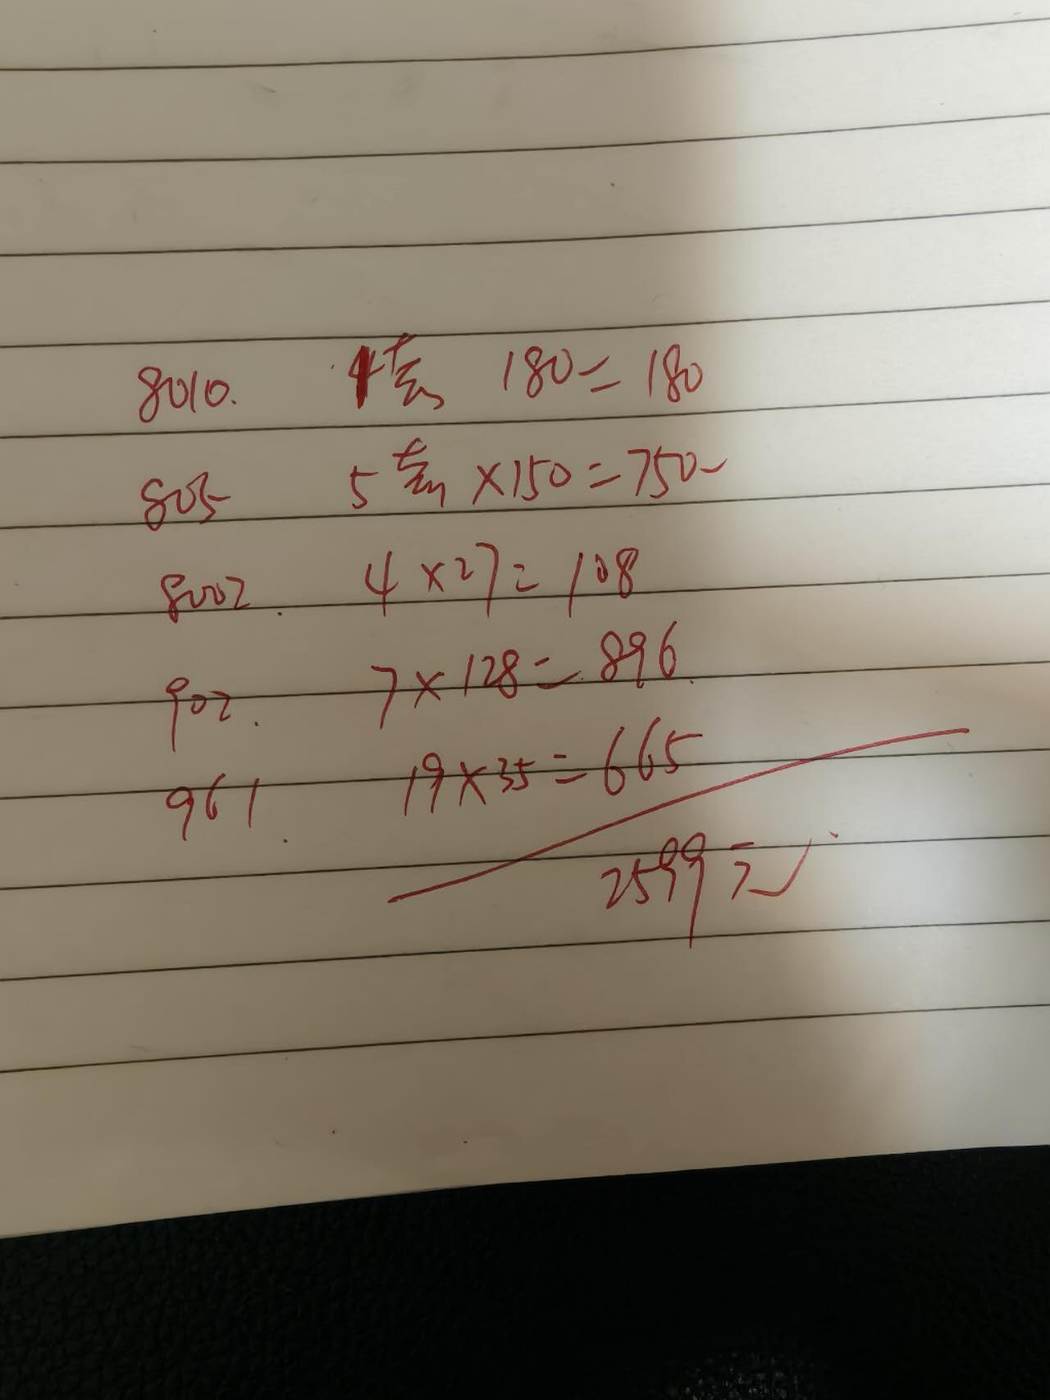 8010. 1套 180=180
805 5套×150=750
8002. 4×27=108
902. 7×128=896.
961. 19×35=665
2599元